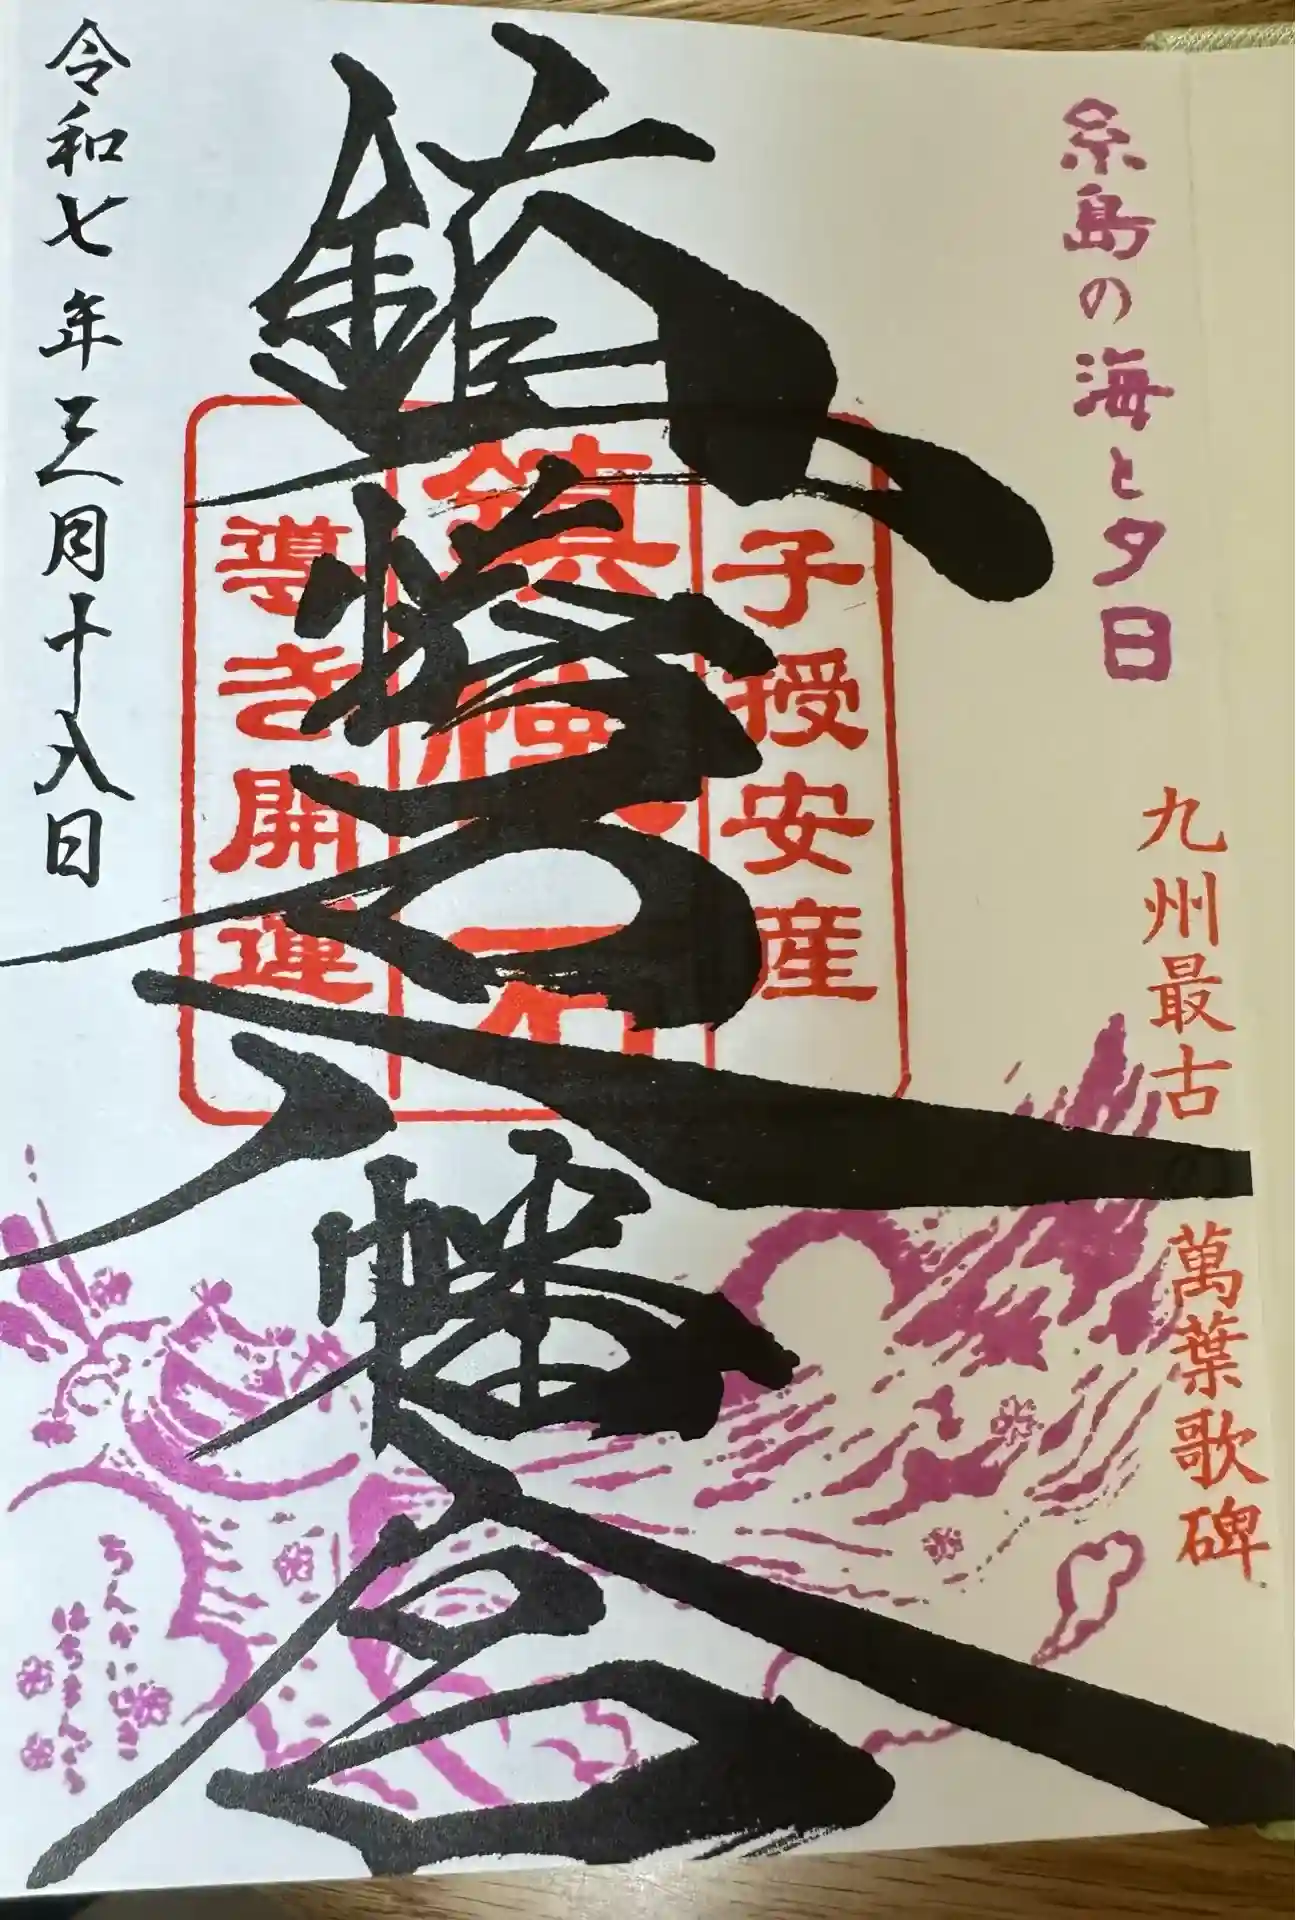 糸島の海と夕日
九州最古の萬葉歌碑
子授安産
鎮懐石
導き開運
鎮懐石八幡宮
令和七年三月十八日
ちんかいせき
はちまんぐう